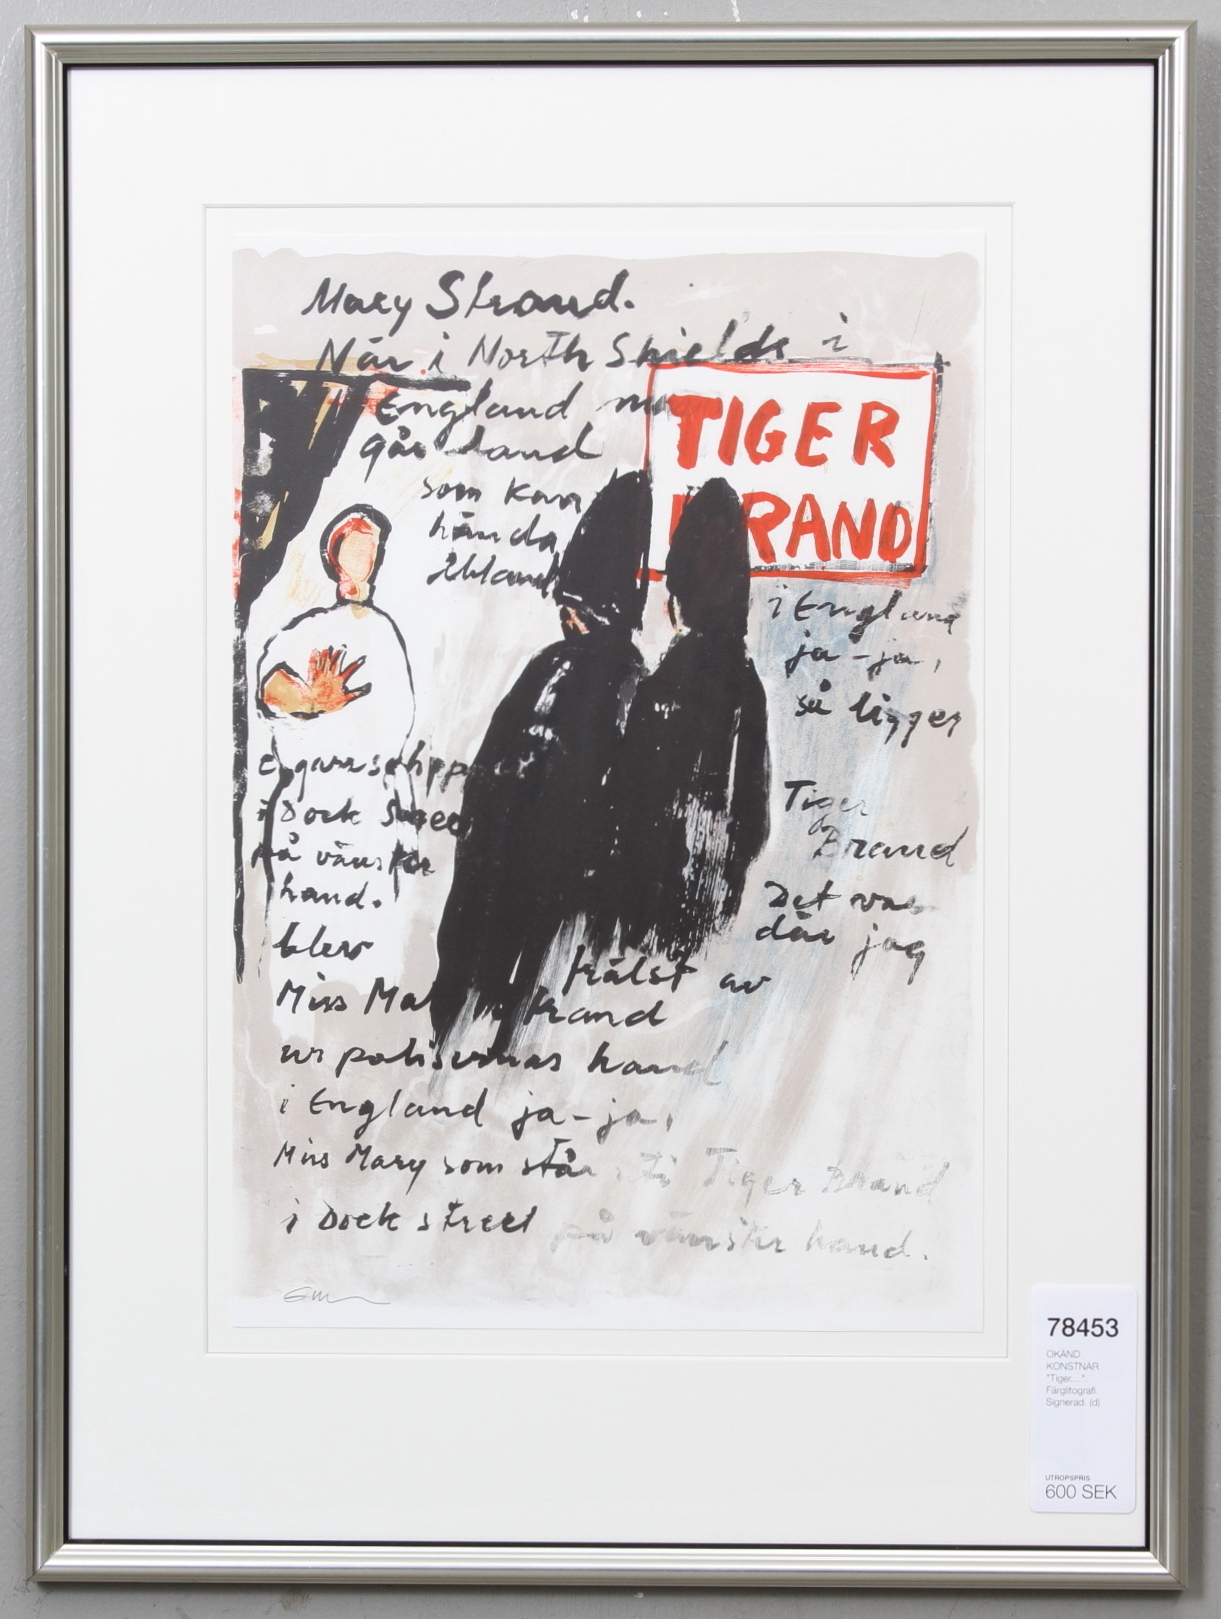 Mary Strand.
När i North Shields i
England man
går i land
som kan
hända
ibland
TIGER
BRAND
i England
ja-ja,
så ligger
Tiger
Brand
i Dock Street
på vänster
hand.
Det var
där jag
blev
frälst av
Miss Mary Strand
ur polisernas hand
i England ja-ja,
Miss Mary som står i Tiger Brand
i Dock street på vänster hand.
78453
OKÄND
KONSTNÄR
"Tiger...."
Färglitografi.
Signerad. (d)
UTROPSPRIS
600 SEK